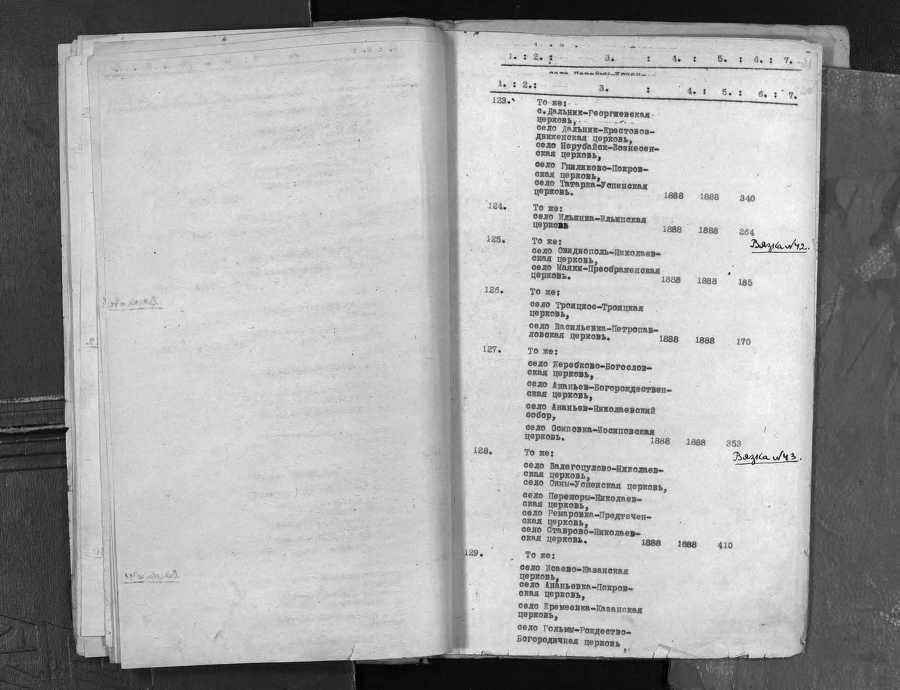 1. : 2. : 3. : 4. : 5. : 6. : 7.
1. : 2.: 3. : 4. : 5. : 6. : 7.
123. То же:
с.Дальник-Георгиевская
церковь,
село Дальник-Крестовоз-
движенская церковь,
село Нерубайск-Вознесен-
ская церковь,
село Гниляково-Покров-
ская церковь,
село Татарка-Успенская
церковь. 1888 1888 340
124. То же:
село Ильинка-Ильинская
церковь 1888 1888 264
Вязка №42.
125. То же:
село Овидиополь-Николаев-
ская церковь,
село Маяки-Преображенская
церковь. 1888 1888 185
126. То же:
село Троицкое-Троицкая
церковь,
село Васильевка-Петропав-
ловская церковь. 1888 1888 170
127. То же:
село Жеребково-Богослов-
ская церковь,
село Ананьев-Богорождествен-
ская церковь,
село Ананьев-Николаевский
собор,
село Осиповка-Иосиповская
церковь. 1888 1888 353
Вязка №43.
128. То же:
село Валегоцулово-Николаев-
ская церковь,
село Окны-Успенская церковь,
село Перешоры-Николаев-
ская церковь,
село Ремаровка-Предтечен-
ская церковь,
село Ставрово-Николаев-
ская церковь. 1888 1888 410
129. То же:
село Исаево-Казанская
церковь,
село Ананьевка-Покров-
ская церковь,
село Еремеевка-Казанская
церковь,
село Гольмы-Рождество-
Богородичная церковь,